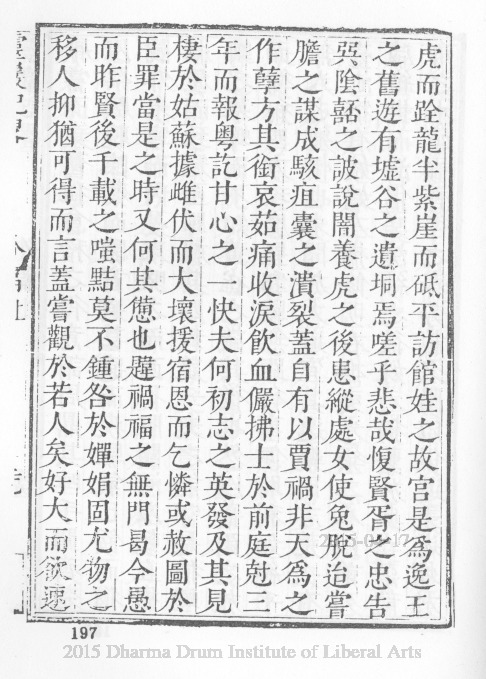 虎而跧龍半紫崖而砥平訪館娃之故宮是爲逸王
之舊遊有墟谷之遺垌焉嗟乎悲哉愎賢胥之忠告
巺陰嚭之詖說闇養虎之後患縱處女使兔脫迨嘗
膽之謀成駭疽囊之潰裂蓋自有以賈禍非天爲之
作孽方其銜哀茹痛收淚飲血儼拂士於前庭尅三
年而報粤訖甘心之一快夫何初志之英發及其見
棲於姑蘇據雌伏而大壞援宿恩而乞憐或赦圖於
臣罪當是之時又何其憊也韙禍福之無門曷今愚
而昨賢後千載之嗤點莫不鍾咎於嬋娟固尤物之
移人抑猶可得而言蓋嘗觀於若人矣好大而欲速
197
2015 Dharma Drum Institute of Liberal Arts